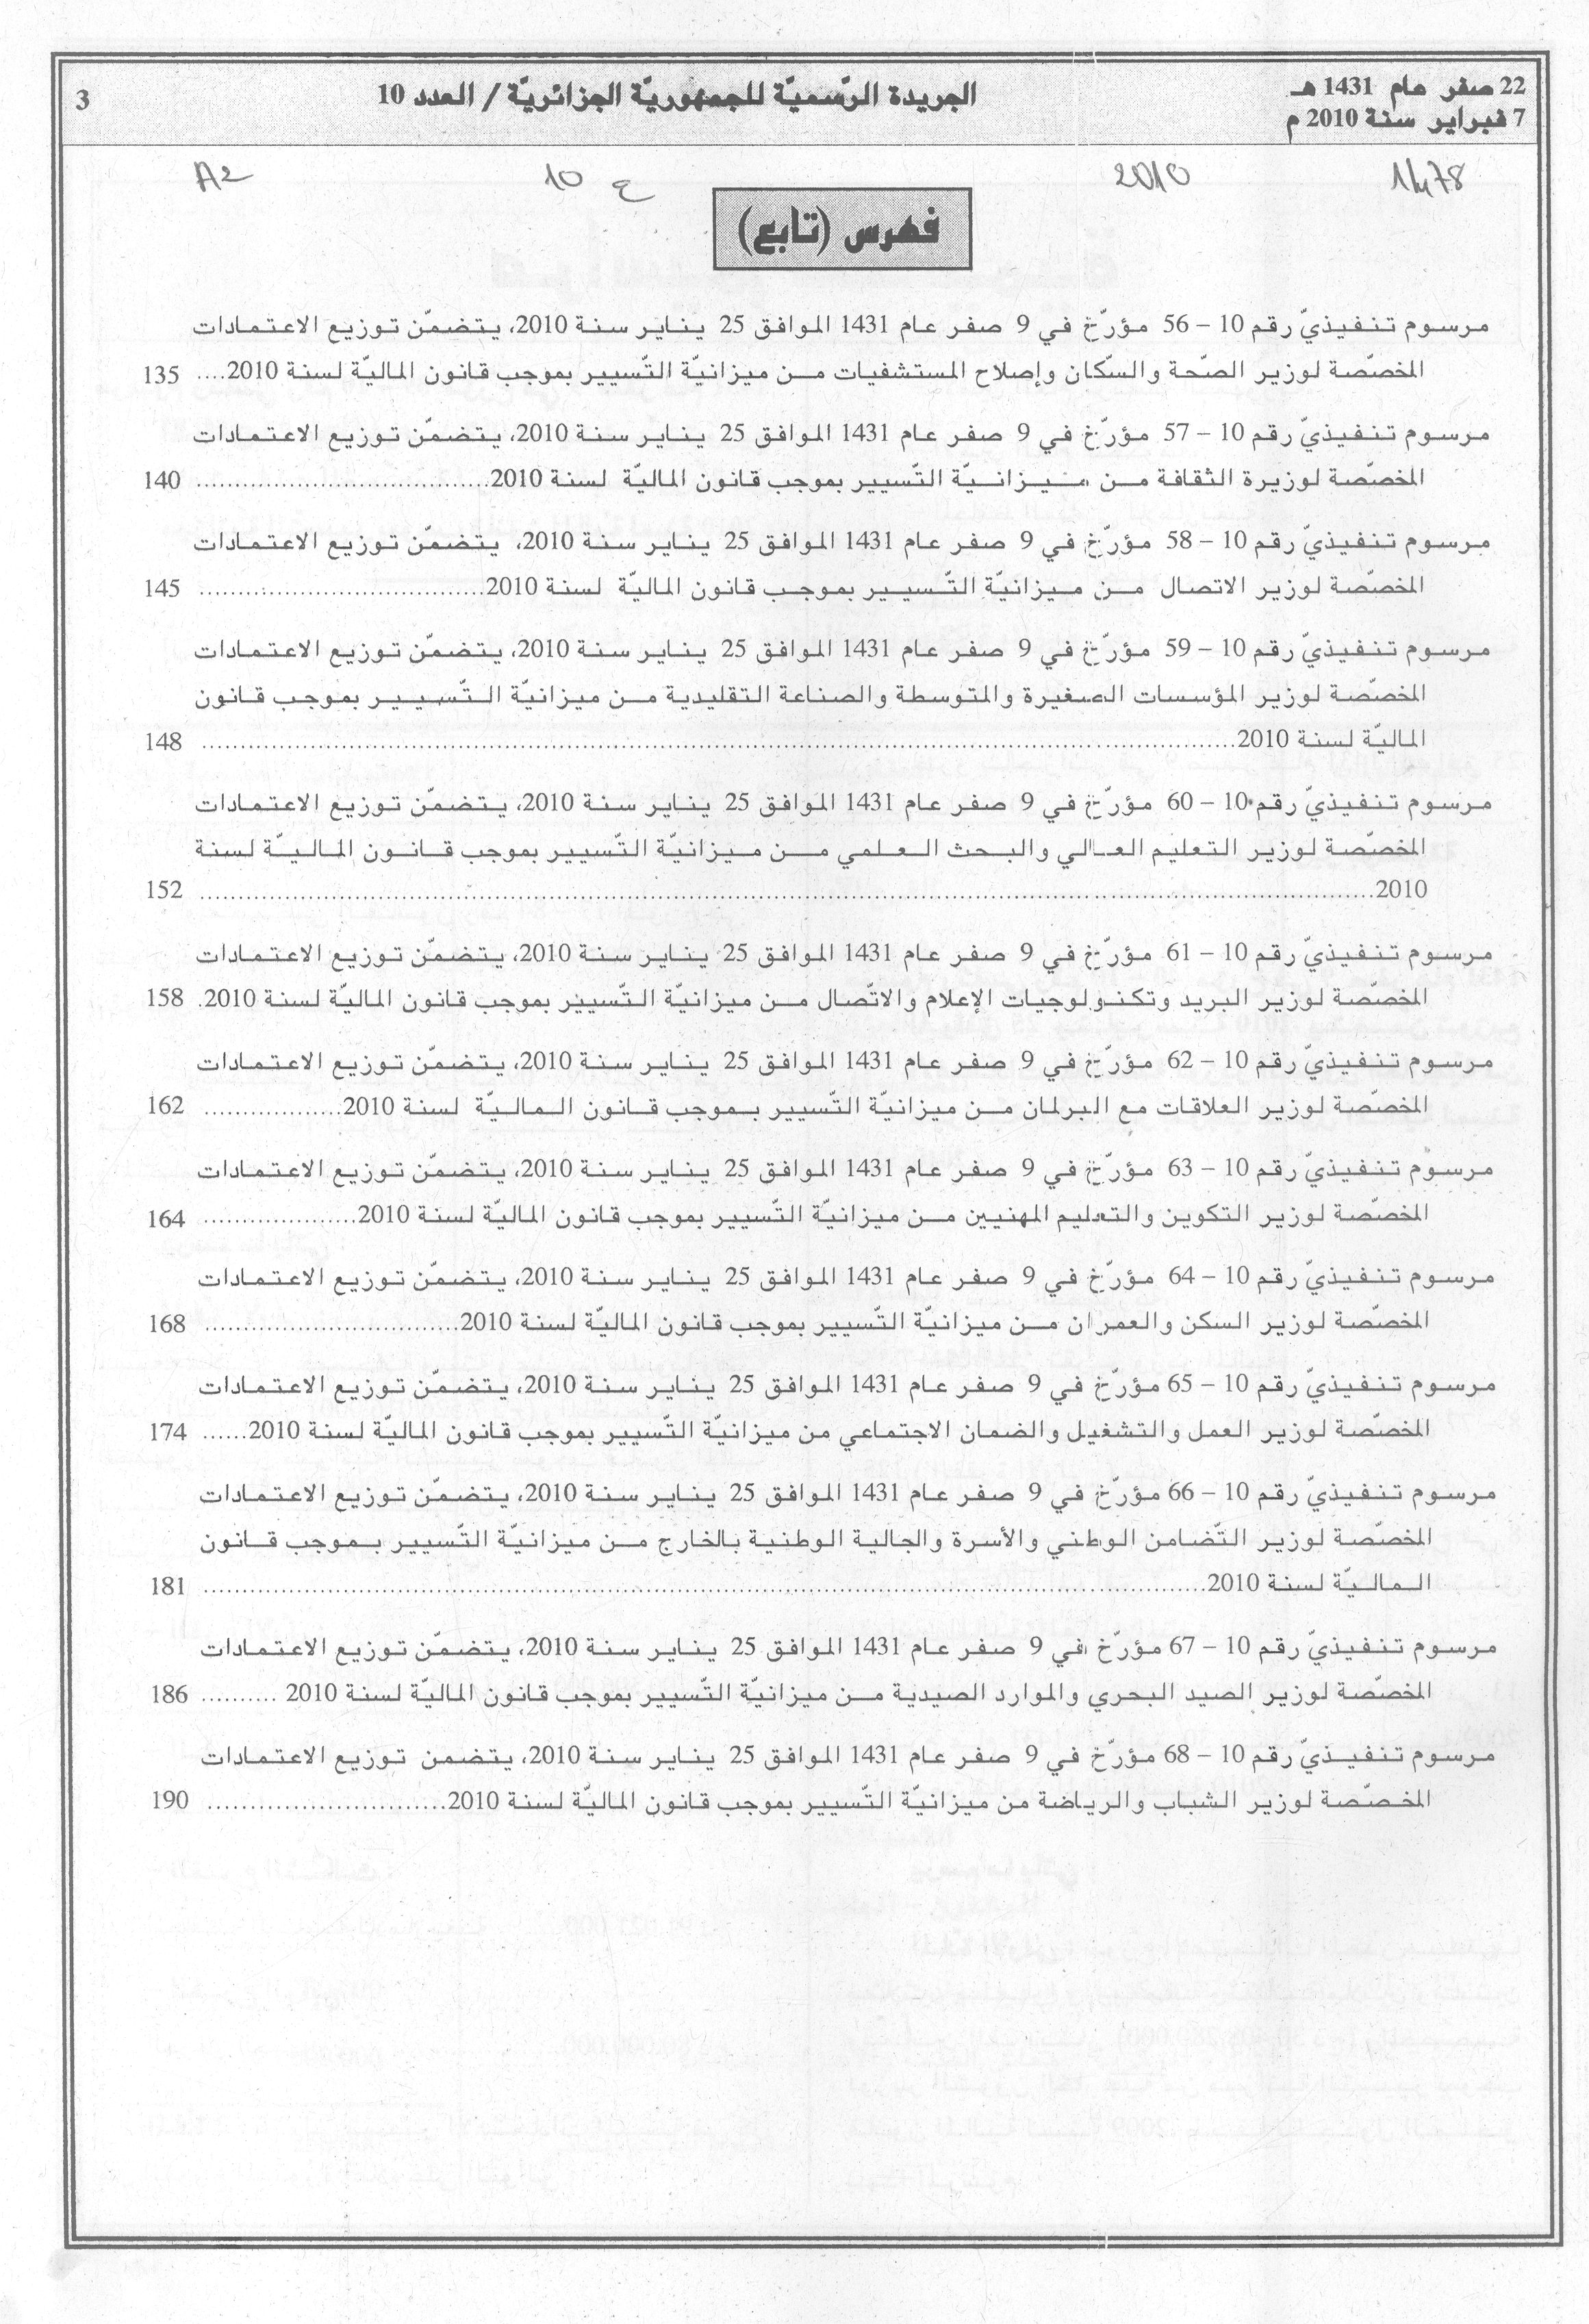 22 صفر عام 1431 هـ
7 فبراير سنة 2010 م
الجريدة الرّسميّة للجمهوريّة الجزائريّة / العدد 10
3
1478
2010
ع 10
A2
فهرس (تابع)
مرسوم تنفيذيّ رقم 10 – 56 مؤرّخ في 9 صفر عام 1431 الموافق 25 يناير سنة 2010، يتضمّن توزيع الاعتمادات
المخصّصة لوزير الصّحة والسّكان وإصلاح المستشفيات من ميزانيّة التّسيير بموجب قانون الماليّة لسنة 2010.... 135
مرسوم تنفيذيّ رقم 10 – 57 مؤرّخ في 9 صفر عام 1431 الموافق 25 يناير سنة 2010، يتضمّن توزيع الاعتمادات
المخصّصة لوزيرة الثقافة من ميزانيّة التّسيير بموجب قانون الماليّة لسنة 2010.................................... 140
مرسوم تنفيذيّ رقم 10 – 58 مؤرّخ في 9 صفر عام 1431 الموافق 25 يناير سنة 2010، يتضمّن توزيع الاعتمادات
المخصّصة لوزير الاتصال من ميزانيّة التّسيير بموجب قانون الماليّة لسنة 2010.................................... 145
مرسوم تنفيذيّ رقم 10 – 59 مؤرّخ في 9 صفر عام 1431 الموافق 25 يناير سنة 2010، يتضمّن توزيع الاعتمادات
المخصّصة لوزير المؤسسات الصغيرة والمتوسطة والصناعة التقليدية من ميزانيّة التّسيير بموجب قانون
الماليّة لسنة 2010.................................................................................... 148
مرسوم تنفيذيّ رقم 10 – 60 مؤرّخ في 9 صفر عام 1431 الموافق 25 يناير سنة 2010، يتضمّن توزيع الاعتمادات
المخصّصة لوزير التعليم العالي والبحث العلمي من ميزانيّة التّسيير بموجب قانون الماليّة لسنة
2010.................................................................................... 152
مرسوم تنفيذيّ رقم 10 – 61 مؤرّخ في 9 صفر عام 1431 الموافق 25 يناير سنة 2010، يتضمّن توزيع الاعتمادات
المخصّصة لوزير البريد وتكنولوجيات الإعلام والاتّصال من ميزانيّة التّسيير بموجب قانون الماليّة لسنة 2010. 158
مرسوم تنفيذيّ رقم 10 – 62 مؤرّخ في 9 صفر عام 1431 الموافق 25 يناير سنة 2010، يتضمّن توزيع الاعتمادات
المخصّصة لوزير العلاقات مع البرلمان من ميزانيّة التّسيير بموجب قانون الماليّة لسنة 2010.................. 162
مرسوم تنفيذيّ رقم 10 – 63 مؤرّخ في 9 صفر عام 1431 الموافق 25 يناير سنة 2010، يتضمّن توزيع الاعتمادات
المخصّصة لوزير التكوين والتعليم المهنيين من ميزانيّة التّسيير بموجب قانون الماليّة لسنة 2010.................... 164
مرسوم تنفيذيّ رقم 10 – 64 مؤرّخ في 9 صفر عام 1431 الموافق 25 يناير سنة 2010، يتضمّن توزيع الاعتمادات
المخصّصة لوزير السكن والعمران من ميزانيّة التّسيير بموجب قانون الماليّة لسنة 2010................................. 168
مرسوم تنفيذيّ رقم 10 – 65 مؤرّخ في 9 صفر عام 1431 الموافق 25 يناير سنة 2010، يتضمّن توزيع الاعتمادات
المخصّصة لوزير العمل والتشغيل والضمان الاجتماعي من ميزانيّة التّسيير بموجب قانون الماليّة لسنة 2010...... 174
مرسوم تنفيذيّ رقم 10 – 66 مؤرّخ في 9 صفر عام 1431 الموافق 25 يناير سنة 2010، يتضمّن توزيع الاعتمادات
المخصّصة لوزير التّضامن الوطني والأسرة والجالية الوطنية بالخارج من ميزانيّة التّسيير بموجب قانون
الماليّة لسنة 2010.................................................................................... 181
مرسوم تنفيذيّ رقم 10 – 67 مؤرّخ في 9 صفر عام 1431 الموافق 25 يناير سنة 2010، يتضمّن توزيع الاعتمادات
المخصّصة لوزير الصيد البحري والموارد الصيدية من ميزانيّة التّسيير بموجب قانون الماليّة لسنة 2010 .......... 186
مرسوم تنفيذيّ رقم 10 – 68 مؤرّخ في 9 صفر عام 1431 الموافق 25 يناير سنة 2010، يتضمن توزيع الاعتمادات
المخصّصة لوزير الشباب والرياضة من ميزانيّة التّسيير بموجب قانون الماليّة لسنة 2010............................... 190